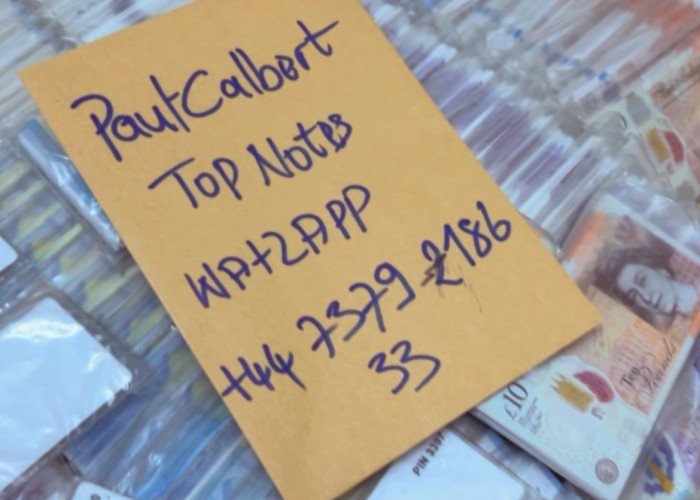 Paul Calbert
Top Notes
WAtzAPP
+44 7379 2186
33
£10
PIN 339